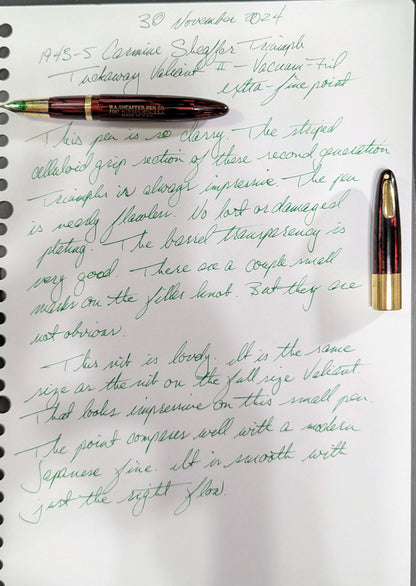 30 November 2024
1943-5 Carmine Sheaffer Triumph
Tuckaway Valiant II - Vacuum-Fil
extra-fine point
W.A. SHEAFFER PEN CO.
This pen is so classy. The striped
celluloid grip section of these second generation
Triumphs is always impressive. The pen
is nearly flawless. No lost or damaged
plating. The barrel transparency is
very good. There are a couple small
marks on the filler knob. But they are
not obvious.
This nib is lovely. It is the same
size as the nib on the full size Valiant.
That looks impressive on this small pen.
The point compares well with a modern
Japanese fine. It is smooth with
just the right flow.